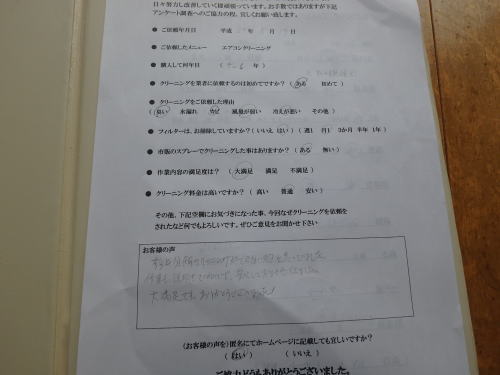 日々努力し改善していく様頑張っています。お手数ではありますが下記
アンケート調査へのご協力の程、宜しくお願い致します。
● ご依頼年月日 平成 年 月 日
● ご依頼したメニュー エアコンクリーニング
● 購入して何年目 ( 年 )
● クリーニングを業者に依頼するのは初めてですか？ ( ある 初めて )
● クリーニングをご依頼した理由
( 臭い 水漏れ カビ 風量が弱い 冷えが悪い その他 )
● フィルターは、お掃除していますか？ ( いいえ はい ) ( 週1 月1 3か月 半年 1年 )
● 市販のスプレーでクリーニングした事はありますか？ ( ある 無い )
● 作業内容の満足度は？ ( 大満足 満足 不満足 )
● クリーニング料金は高いですか？ ( 高い 普通 安い )
その他、下記空欄にお気づきになった事、今回なぜクリーニングを依頼を
されたなど何でもよろしいです。ぜひご意見をお聞かせ下さい
お客様の声
大満足です。ありがとうございました！
(お客様の声を) 匿名にてホームページに記載しても宜しいですか？
( はい ) ( いいえ )
ご協力どうもありがとうございました。